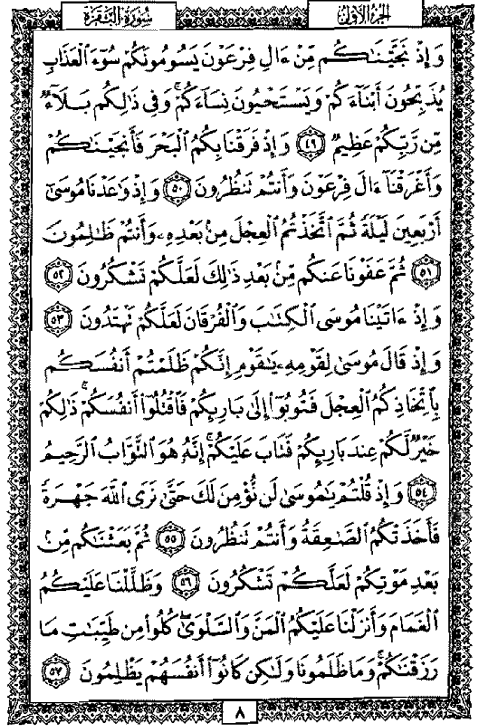 الجزء الأول
سورة البقرة
وَإِذْ نَجَّيْنَٰكُم مِّنْ ءَالِ فِرْعَوْنَ يَسُومُونَكُمْ سُوٓءَ ٱلْعَذَابِ
يُذَبِّحُونَ أَبْنَآءَكُمْ وَيَسْتَحْيُونَ نِسَآءَكُمْ ۚ وَفِى ذَٰلِكُم بَلَآءٌ
مِّن رَّبِّكُمْ عَظِيمٌ ٤٩ وَإِذْ فَرَقْنَا بِكُمُ ٱلْبَحْرَ فَأَنجَيْنَٰكُمْ
وَأَغْرَقْنَآ ءَالَ فِرْعَوْنَ وَأَنتُمْ تَنظُرُونَ ٥٠ وَإِذْ وَٰعَدْنَا مُوسَىٰٓ
أَرْبَعِينَ لَيْلَةً ثُمَّ ٱتَّخَذْتُمُ ٱلْعِجْلَ مِنۢ بَعْدِهِۦ وَأَنتُمْ ظَٰلِمُونَ
٥١ ثُمَّ عَفَوْنَا عَنكُم مِّنۢ بَعْدِ ذَٰلِكَ لَعَلَّكُمْ تَشْكُرُونَ ٥٢
وَإِذْ ءَاتَيْنَا مُوسَى ٱلْكِتَٰبَ وَٱلْفُرْقَانَ لَعَلَّكُمْ تَهْتَدُونَ ٥٣
وَإِذْ قَالَ مُوسَىٰ لِقَوْمِهِۦ يَٰقَوْمِ إِنَّكُمْ ظَلَمْتُمْ أَنفُسَكُم
بِٱتِّخَاذِكُمُ ٱلْعِجْلَ فَتُوبُوٓا۟ إِلَىٰ بَارِئِكُمْ فَٱقْتُلُوٓا۟ أَنفُسَكُمْ ۚ ذَٰلِكُمْ
خَيْرٌ لَّكُمْ عِندَ بَارِئِكُمْ فَتَابَ عَلَيْكُمْ ۚ إِنَّهُۥ هُوَ ٱلتَّوَّابُ ٱلرَّحِيمُ
٥٤ وَإِذْ قُلْتُمْ يَٰمُوسَىٰ لَن نُّؤْمِنَ لَكَ حَتَّىٰ نَرَى ٱللَّهَ جَهْرَةً
فَأَخَذَتْكُمُ ٱلصَّٰعِقَةُ وَأَنتُمْ تَنظُرُونَ ٥٥ ثُمَّ بَعَثْنَٰكُم مِّنۢ
بَعْدِ مَوْتِكُمْ لَعَلَّكُمْ تَشْكُرُونَ ٥٦ وَظَلَّلْنَا عَلَيْكُمُ
ٱلْغَمَامَ وَأَنزَلْنَا عَلَيْكُمُ ٱلْمَنَّ وَٱلسَّلْوَىٰ ۖ كُلُوا۟ مِن طَيِّبَٰتِ مَا
رَزَقْنَٰكُمْ ۖ وَمَا ظَلَمُونَا وَلَٰكِن كَانُوٓا۟ أَنفُسَهُمْ يَظْلِمُونَ ٥٧
٨